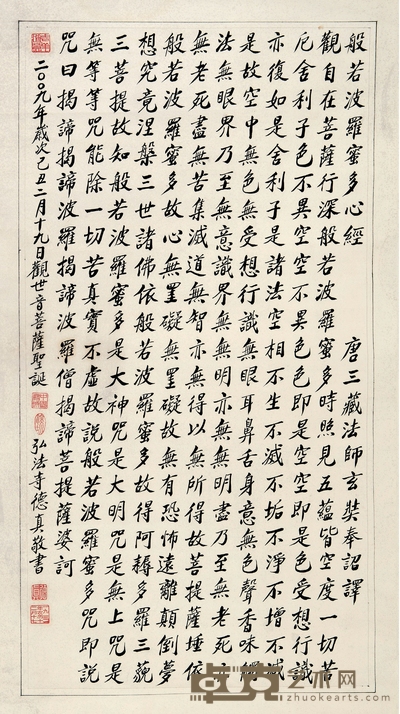 般若波羅蜜多心經 唐三藏法師玄奘奉詔譯
觀自在菩薩行深般若波羅蜜多時照見五蘊皆空度一切苦
厄舍利子色不異空空不異色色即是空空即是色受想行識
亦復如是舍利子是諸法空相不生不滅不垢不淨不增不減
是故空中無色無受想行識無眼耳鼻舌身意無色聲香味觸
法無眼界乃至無意識界無無明亦無無明盡乃至無老死亦
無老死盡無苦集滅道無智亦無得以無所得故菩提薩埵依
般若波羅蜜多故心無罣礙無罣礙故無有恐怖遠離顛倒夢
想究竟涅槃三世諸佛依般若波羅蜜多故得阿耨多羅三藐
三菩提故知般若波羅蜜多是大神咒是大明咒是無上咒是
無等等咒能除一切苦真實不虛故說般若波羅蜜多咒即說
咒曰揭諦揭諦波羅揭諦波羅僧揭諦菩提薩婆訶
二〇〇九年歲次己丑二月十九日觀世音菩薩聖誕 弘法寺德真敬書
艺术网